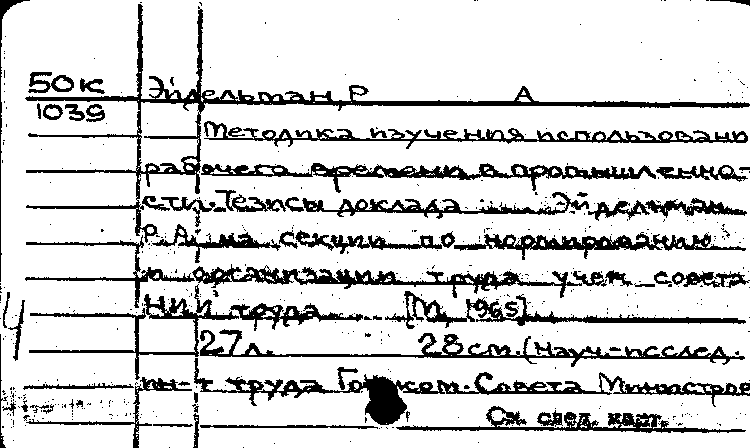 50к Эйдельман, Р А
1039
Методика изучения использовани
рабочего времени в промышленно-
сти. Тезисы доклада Эйдельман
Р.А. на секции по нормированию
и организации труда учен совета
НИИ труда [М, 1965]
27л. 28см. (Науч.-исслед.
ин-т труда Гос. ком. Совета Министров
См. след. карт.
4